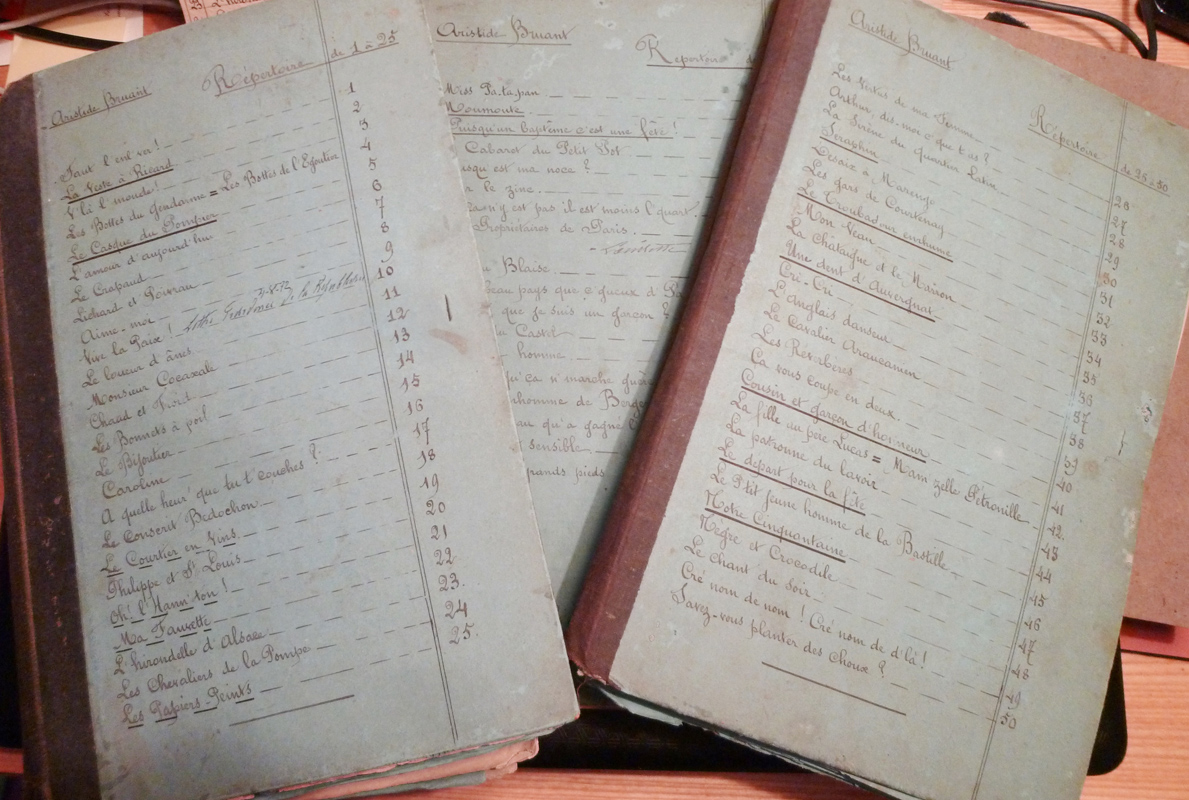 Aristide Bruant
Répertoire de 1 à 25
Faut l'enl'ver! 1
La Veste à Ricard 2
V'là l'monde! 3
Les Bottes du Gendarme = Les Bottes de l'Egoutier 4
Le Casque du Pompier 5
L'amour d'aujourd'hui 6
Le Crapaud 7
Lichard et Poivrau 8
Aime-moi 9
Vive la Paix! 10
Le loueur d'ânes 11
Monsieur Cocaxali 12
Chaud et Froid 13
Les Bonnets à poil 14
Le Bijoutier 15
Caroline 16
A quelle heur' que tu t'couches? 17
Le Conscrit Bidochon 18
Le Courtier en Vins 19
Philippe et St Louis 20
Oh! l'Hann'ton! 21
Ma Fauvette 22
L'hirondelle d'Alsace 23
Les Chevaliers de la Pompe 24
Les Papiers-Peints 25
Aristide Bruant
Répertoire d
Miss Pa-ta-pan
Moumoute
Puisqu'un baptême c'est une fête!
Cabaret du Petit Pot
usqu'est ma noce?
r le zinc
n'y est pas il est moins l'quart
Propriétaires de Paris
Blaise
beau pays que c'gueux d'Pa
que je suis un garçon?
Castel
homme
qu'ça n'marche guère
rhomme de Berge
au qu'a gagné l
sensible
grands pieds
Aristide Bruant
Répertoire de 25 à 50
Les Vertus de ma Femme 26
Arthur, dis-moi c'que t'as? 27
La Sirène du quartier Latin 28
Séraphin 29
Desaix à Marengo 30
Les gars de Courtenay 31
Le Troubadour enrhumé 32
Mon Veau 33
La Châtaigne et le Marron 34
Une dent d'Auvergnat 35
Cri-Cri 36
L'anglais danseur 37
Le Cavalier Araucamen 38
Les Réverbères 39
Ça vous coupe en deux 40
Cousin et garçon d'honneur 41
La fille au père Lucas = Mam'zelle Pétronille 42
La patronne du lavoir 43
Le départ pour la fête 44
Le P'tit jeune homme de la Bastille 45
Notre Cinquantaine 46
Nègre et Crocodile 47
Le Chant du Soir 48
Cré nom de nom! Cré nom de d'là! 49
Savez-vous planter des choux? 50